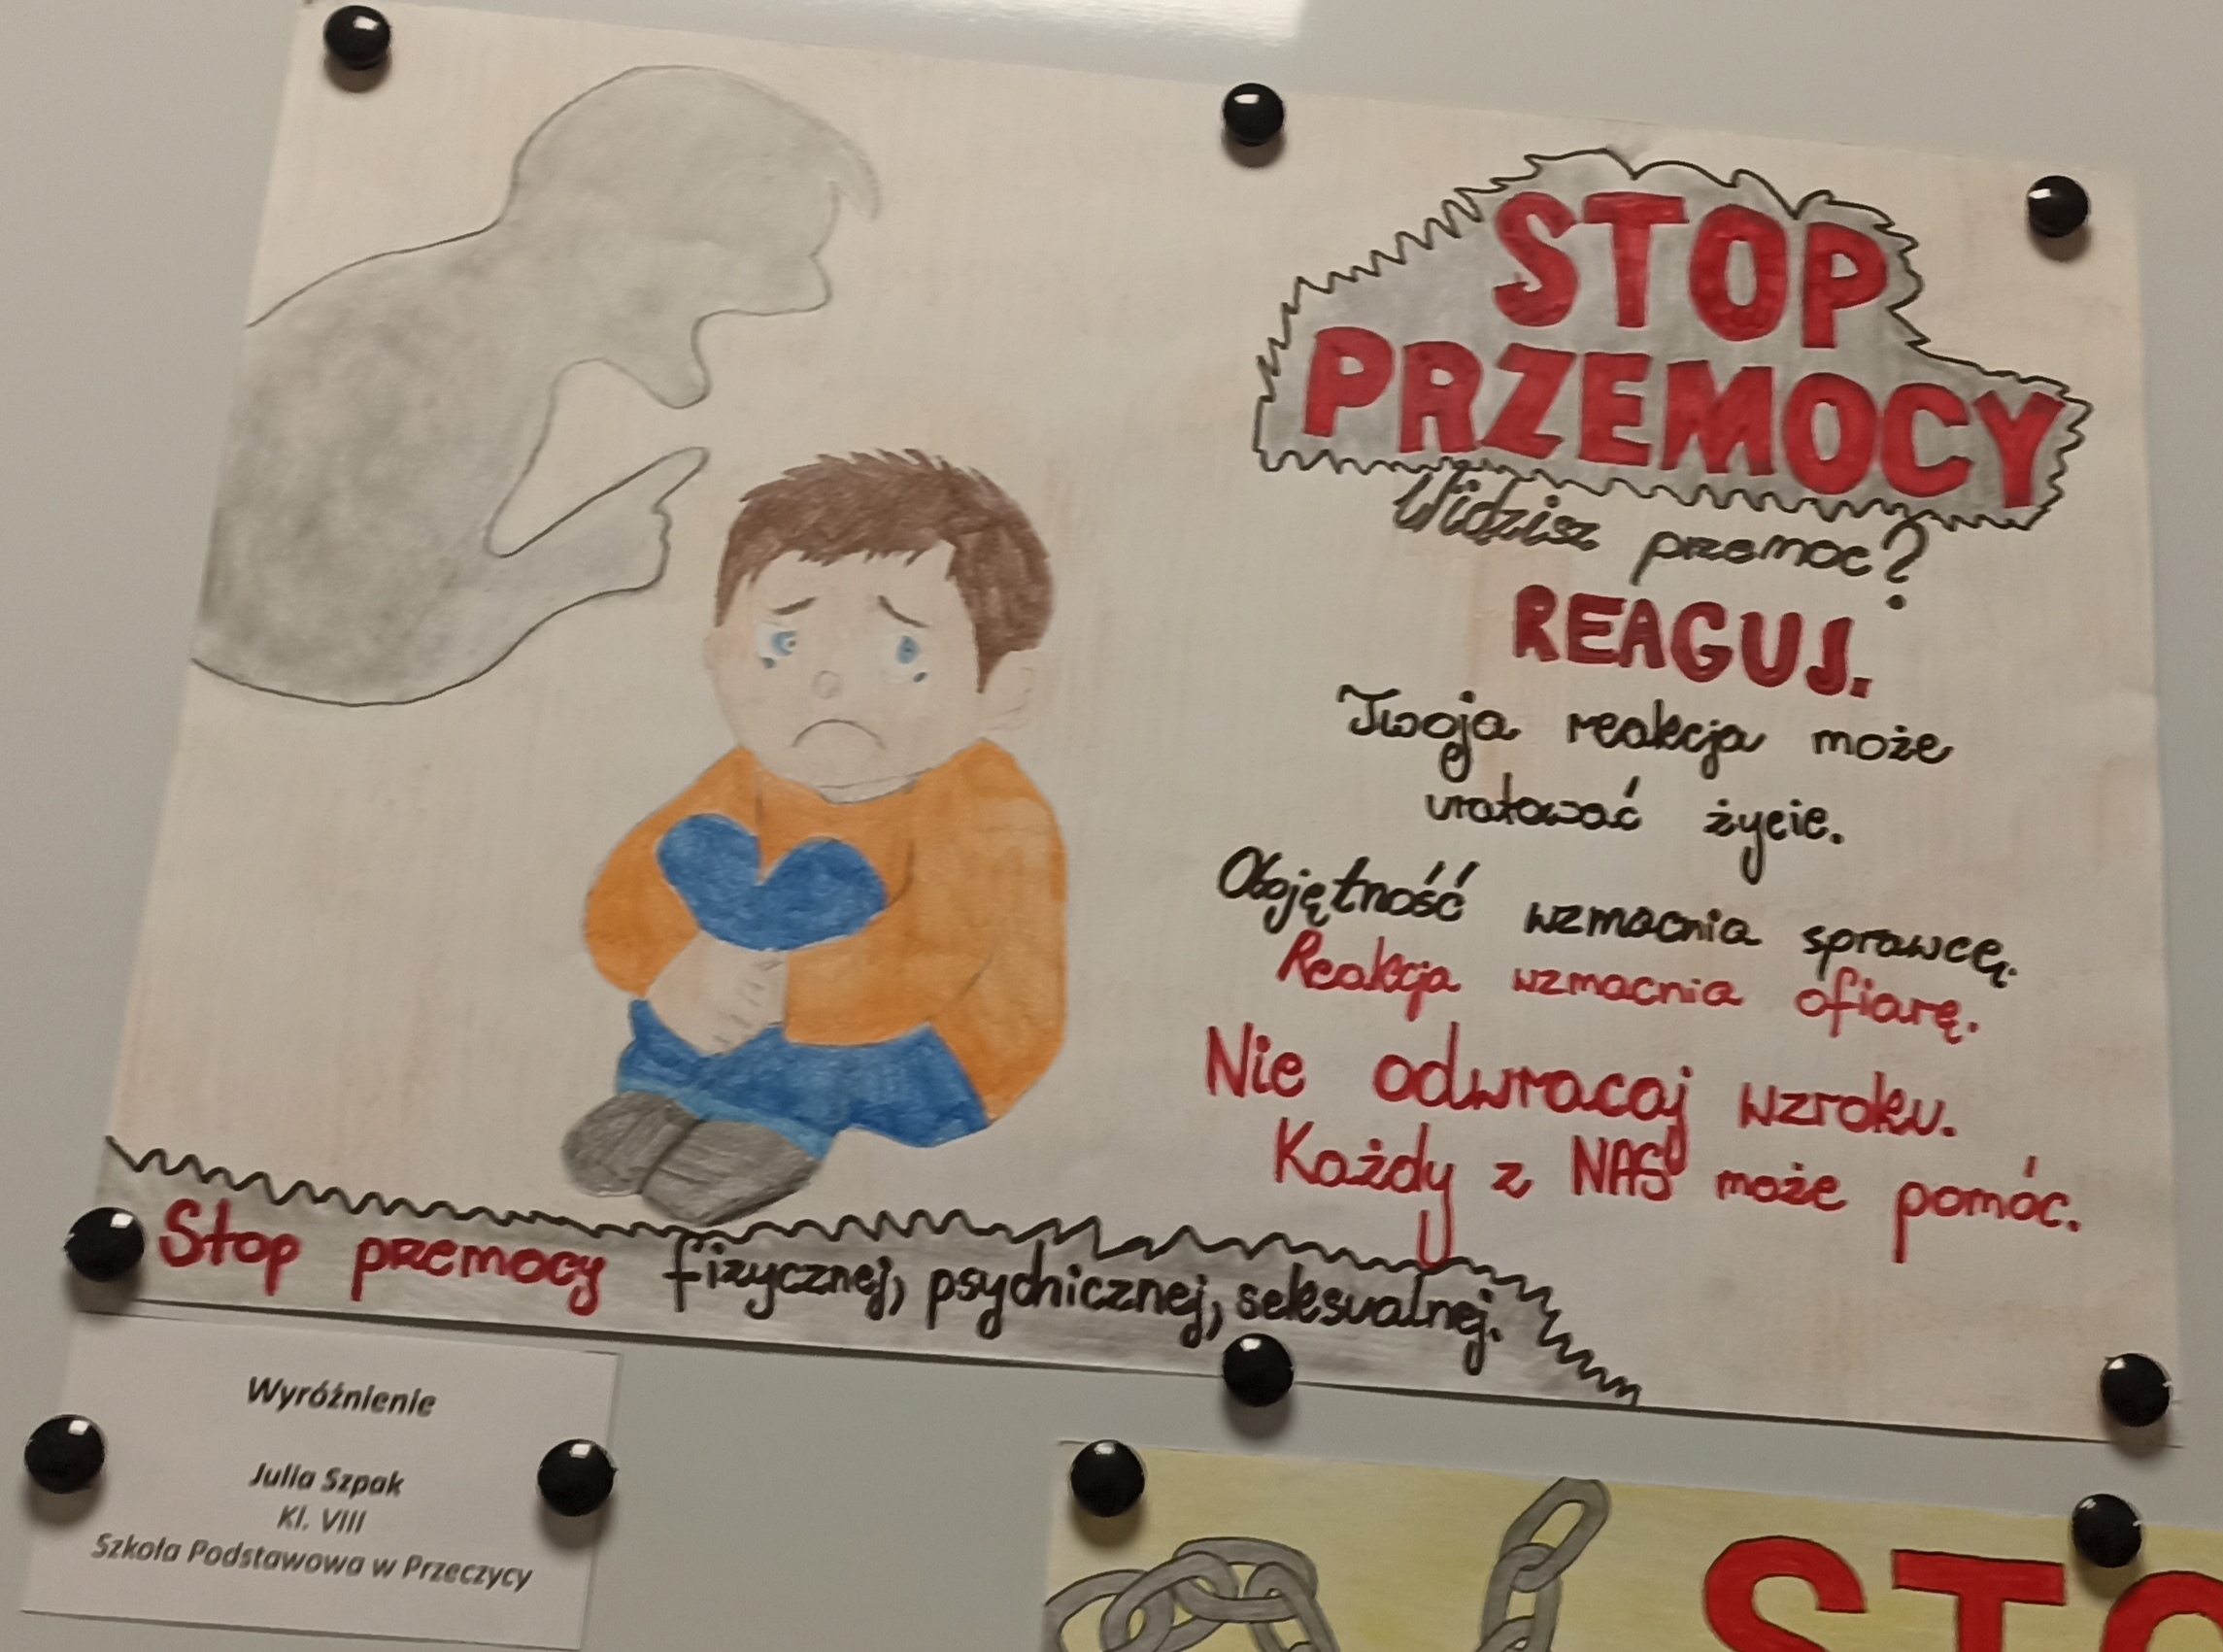 STOP
PRZEMOCY
Widzisz przemoc?
REAGUJ.
Twoja reakcja może
uratować życie.
Obojętność wzmacnia sprawcę.
Reakcja wzmacnia ofiarę.
Nie odwracaj wzroku.
Każdy z NAS może pomóc.
Stop przemocy fizycznej, psychicznej, seksualnej.
Wyróżnienie
Julia Szpak
Kl. VIII
Szkoła Podstawowa w Przeczycy
STO